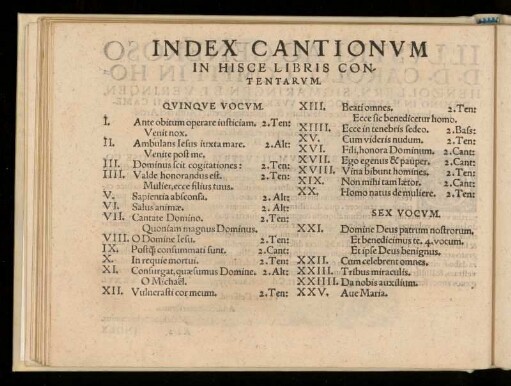 INDEX CANTIONVM
IN HISCE LIBRIS CON-
TENTARVM.
QVINQVE VOCVM.
I. Ante obitum operare iusticiam. 2.Ten:
Venit nox.
II. Ambulans Iesus iuxta mare. 2.Alt:
Venite post me.
III. Dominus scit cogitationes: 2.Ten:
IIII. Valde honorandus est. 2.Ten:
Mulier, ecce filius tuus.
V. Sapientia absconsa. 2.Alt:
VI. Salus animæ. 2.Alt:
VII. Cantate Domino. 2.Ten:
Quoniam magnus Dominus.
VIII. O Domine Iesu. 2.Ten:
IX. Postq̃ consummati sunt. 2.Cant:
X. In requie mortui. 2.Ten:
XI. Consurgat, quæsumus Domine. 2.Alt:
O Michaël.
XII. Vulnerasti cor meum. 2.Ten:
XIII. Beati omnes. 2.Ten:
Ecce sic benedicetur homo.
XIIII. Ecce in tenebris sedeo. 2.Bass:
XV. Cum videris nudum. 2.Ten:
XVI. Fili, honora Dominum. 2.Cant:
XVII. Ego egenus & pauper. 2.Cant:
XVIII. Vina bibunt homines. 2.Ten:
XIX. Non mihi tam lætor. 2.Cant:
XX. Homo natus de muliere. 2.Ten:
SEX VOCVM.
XXI. Domine Deus patrum nostrorum.
Et benedicimus te. 4. vocum.
Et ipse Deus benignus.
XXII. Cum celebrent omnes.
XXIII. Tribus miraculis.
XXIIII. Da nobis auxilium.
XXV. Aue Maria.